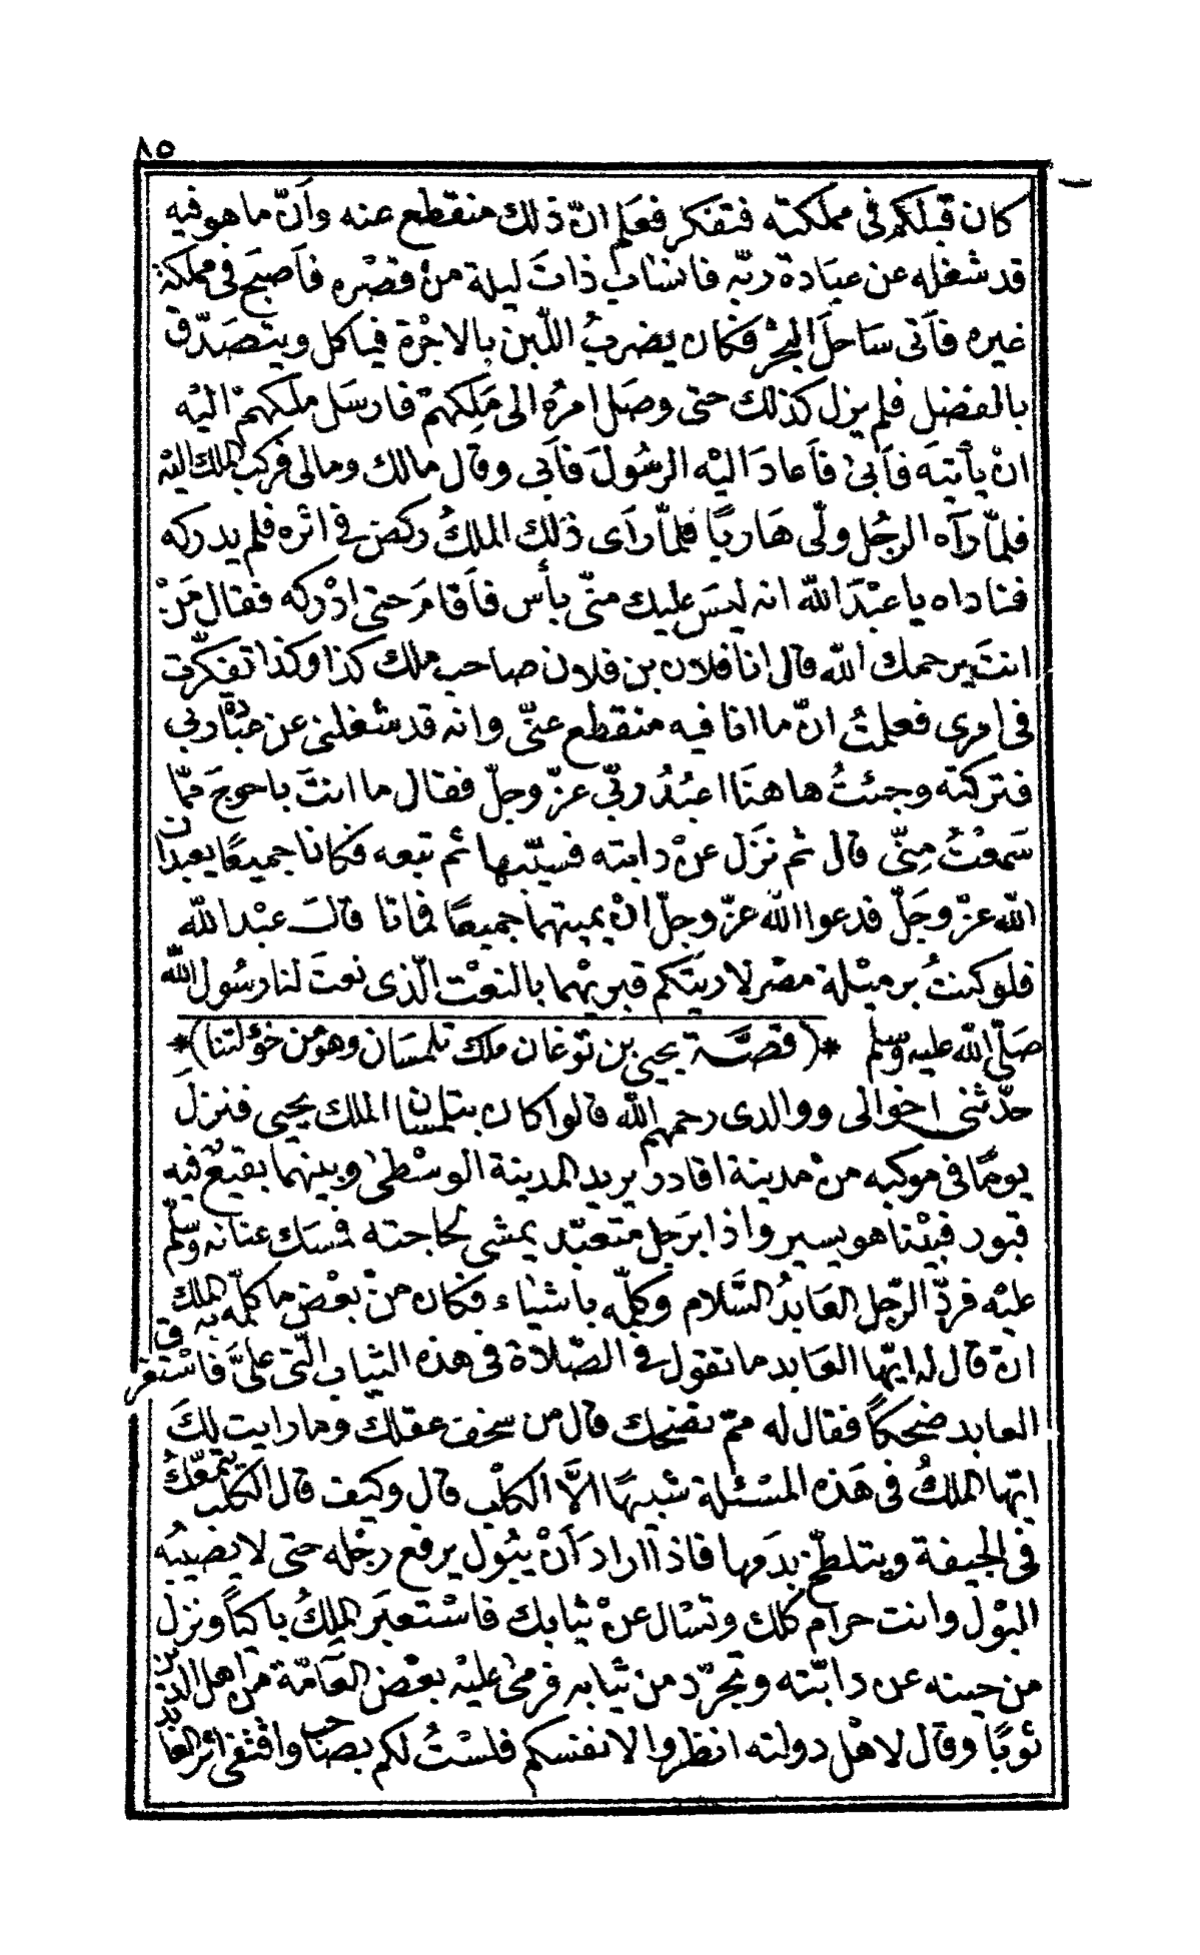 ٨٥
كان قبلكم في مملكته فتفكر فعلم انّ ذلك منقطع عنه وأنّ ما هو فيه
قد شغله عن عبَادة ربّه فانسَابَ ذاتَ ليلة منْ قصْره فأصبَح في مملكة
غيره فأتى سَاحلَ البحْر فكان يضربُ اللّبن بالاجْرة فياكل ويتصَدّق
بالفضل فلم يزل كذلك حتى وصَل امرُه الى مَلِكهمْ فارسَل ملكهمْ اليْه
انْ يأتيَه فأبىْ فأعادَ اليْه الرسُولَ فأبى وقال مالك ومالى فركبَ الملك اليْه
فلمّا رآه الرجُل ولّى هَاربًا فلمّا رَأى ذلك الملكُ ركض في اثره فلم يدركه
فناداه يا عبْدَ الله انه ليسَ عليك منّى بأس فأقامَ حتى ادْركه فقال مَنْ
انتَ يرحمك الله قال انا فلان بن فلان صاحب ملك كذا وكذا تفكّرت
في امرى فعلمتُ انّ ما انا فيه منقطع عنّى وانه قد شغلنى عن عبَادة ربى
فتركته وجئتُ هاهنَا اعبُدُ ربّى عزّ وجلّ فقال ما انتَ باحوجَ ممّا
سَمعْتُ مِنّى قال ثم نزَل عنْ دابته فسيّبها ثم تبعه فكانا جميعًا يعبدان
الله عزّ وجَلّ فدعوا الله عزّ وجلّ انْ يميتهما جميعًا فماتا قالَ عبْد الله
فلو كنتُ برميْلة مصْر لاريتَكم قبريْهما بالنعْت الّذى نعتَ لنا رسُول الله
صَلّى الله عليه وسلم *(قصَّة يحيى بن توغان ملك تلمسَان وهو من خؤلتنا)*
حدّثنى اخوالى ووالدى رحمهم الله قالوا كان بتلمسَان الملك يحيى فنزلَ
يومًا في موكبه منْ مدينة اقادر يريد المدينة الوسْطىٰ وبينهما بقيعٌ فيه
قبور فبيْنا هو يسير واذا برَجل متعبّد يمشى لحاجته فمسَك عنانه وسَلّم
عليْه فردّ الرّجل العَابدُ السَّلام وكلّمه باشيَاء فكان منْ بعْض ما كلّمه به الملك
انْ قال له ايّها العَابد ما تقول في الصّلاة في هذه الثياب الّتى علىَّ فاسْتغرق
العابد ضحكًا فقال له ممّ تضحك قال من سخف عقلك وما رايت لكَ
ايّها الملكُ في هَذه المسْئلة شبيهًا الاَّ الكلْب قال وكيف قال الكلب يتمعّكُ
في الجيفة ويتلطّخ بدَمها فاذا ارادَ أنْ يبُول يرفع رجْله حتى لا يصيبُه
البوْل وانت حرام كلك وتسْال عنْ ثيابك فاسْتعبَر الملِكُ باكيًا ونزل
من حينه عن دابّته وتجرّد من ثيابه فرمىٰ عليْه بعْض العَامّة من اهل الدين
ثوبًا وقال لاهْل دولته انظروا لانفسكم فلسْتُ لكم بصَاحب واقتفى اثر العَابد